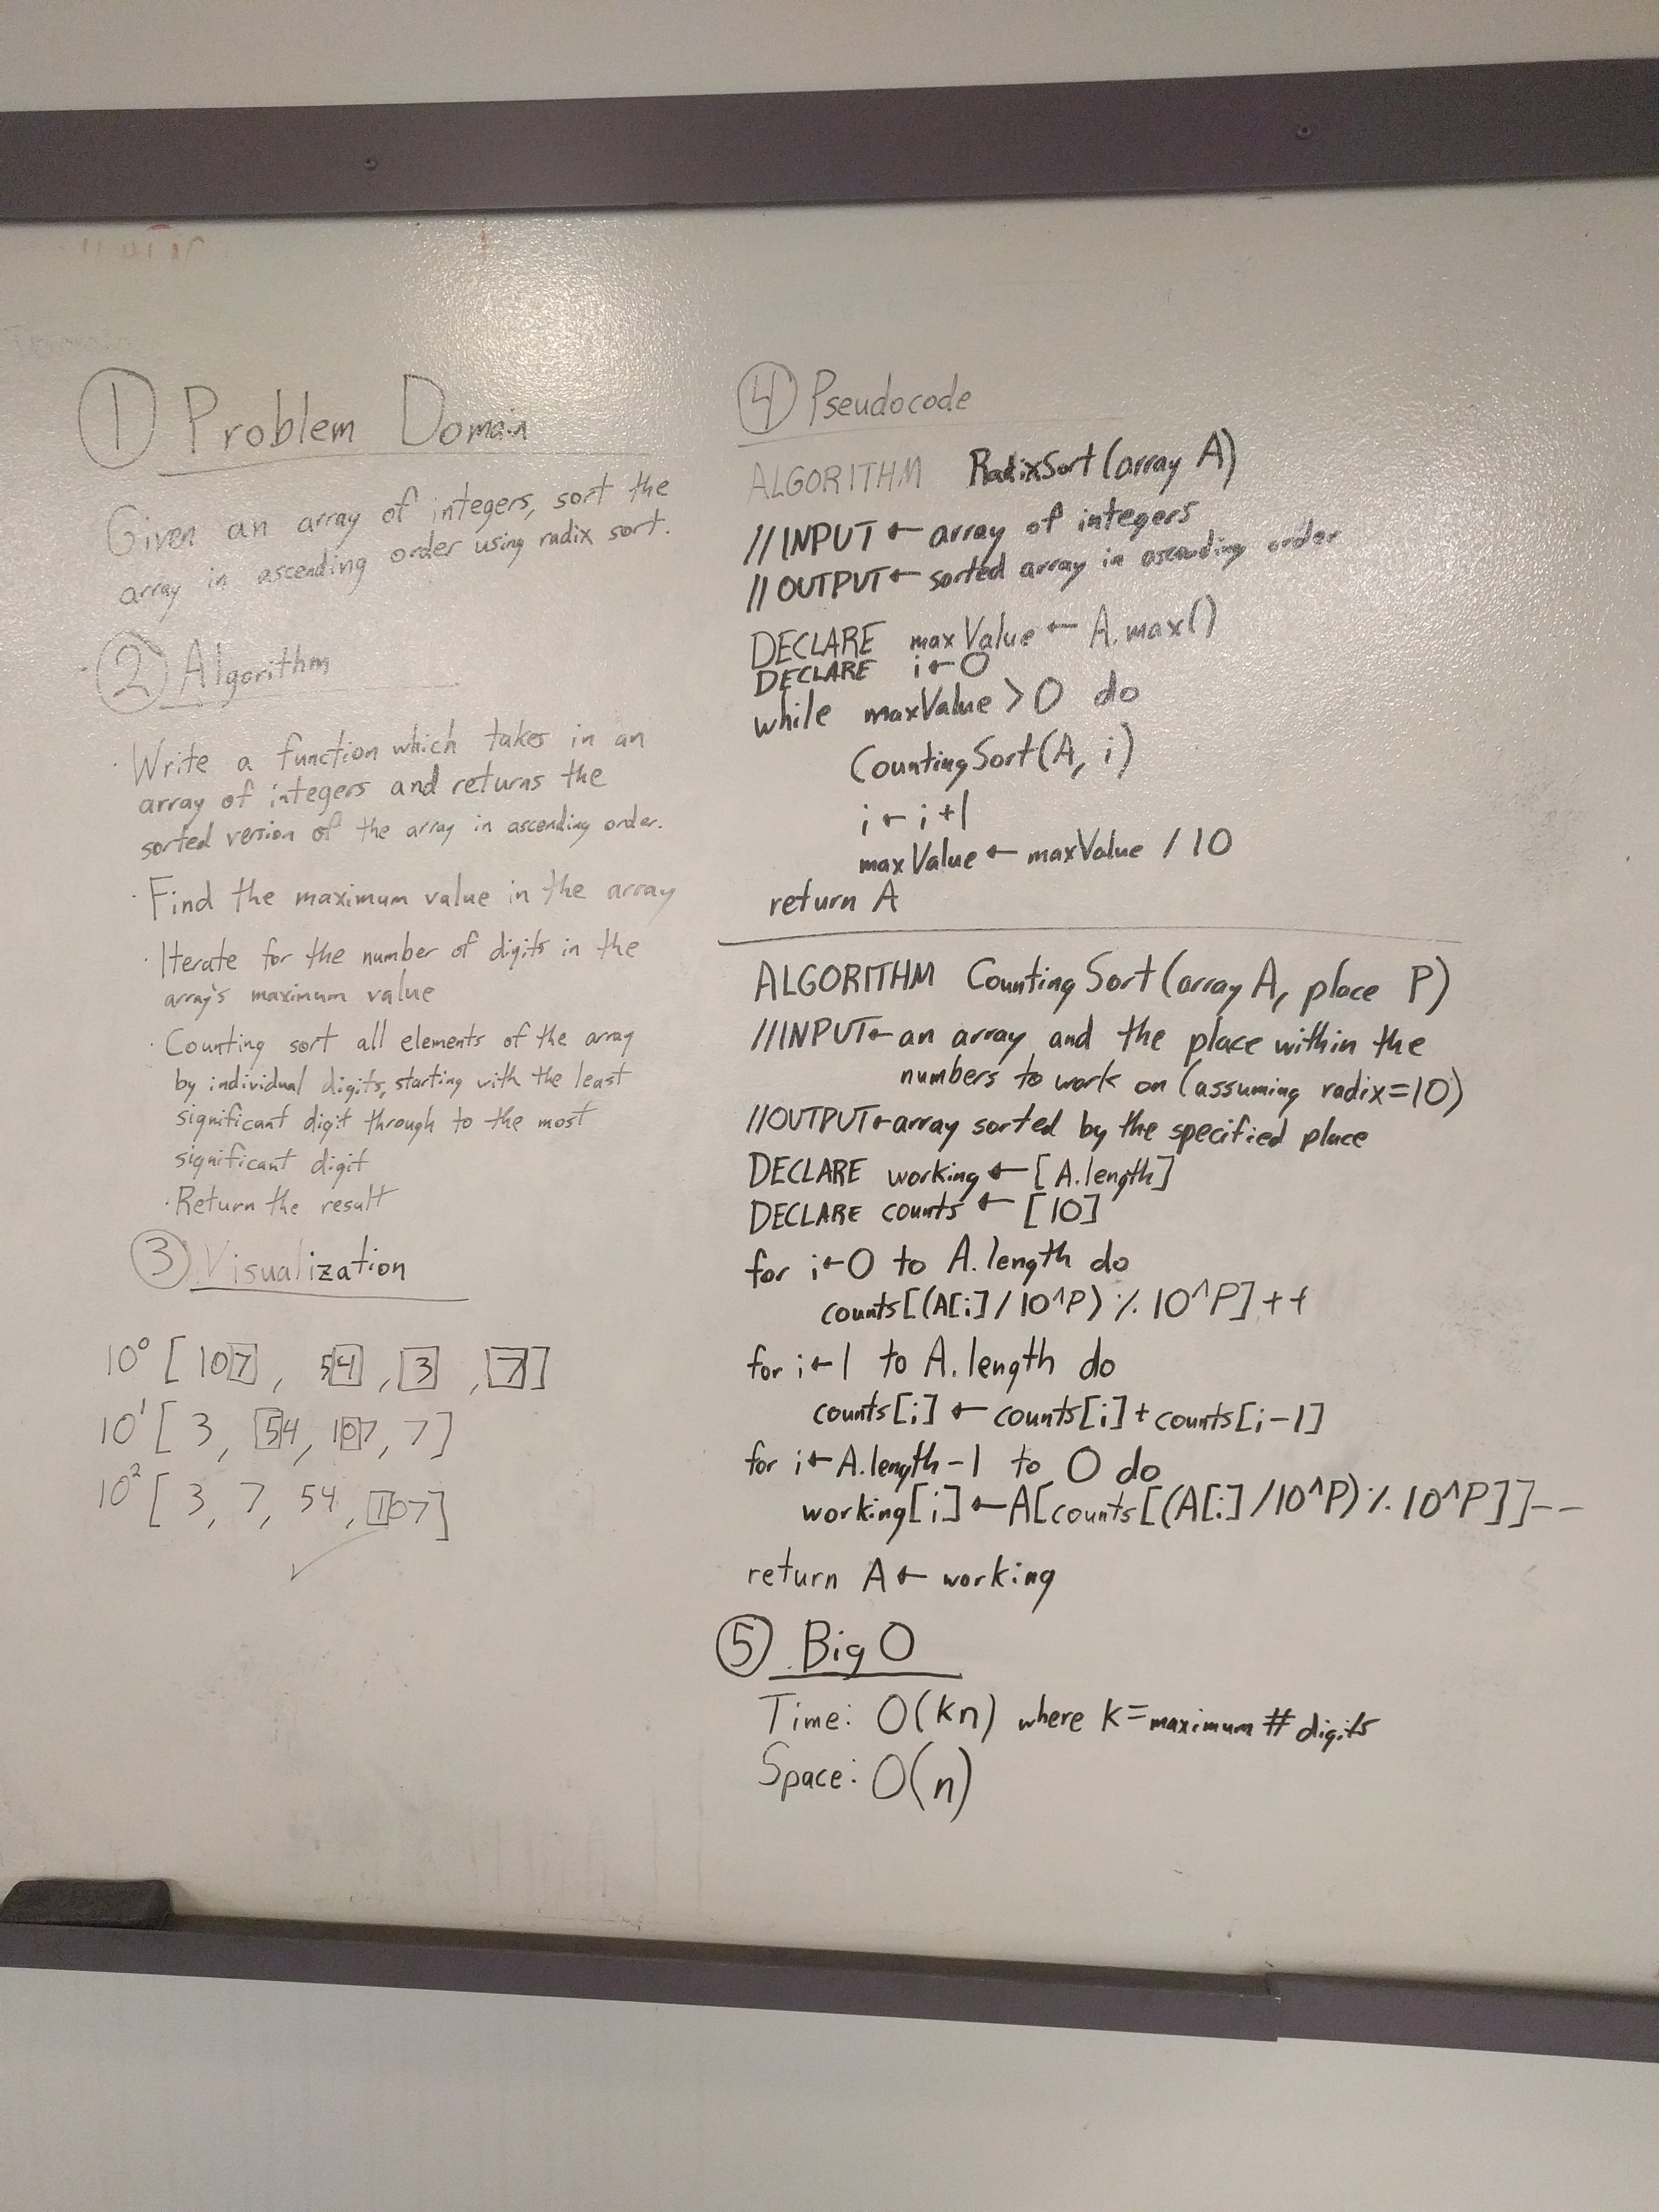 ① Problem Domain
Given an array of integers, sort the
array in ascending order using radix sort.
② Algorithm
· Write a function which takes in an
array of integers and returns the
sorted version of the array in ascending order.
· Find the maximum value in the array
· Iterate for the number of digits in the
array's maximum value
· Counting sort all elements of the array
by individual digits, starting with the least
significant digit through to the most
significant digit
· Return the result
③ Visualization
10⁰ [ 107, 54, 3, 7]
10¹ [ 3, 54, 107, 7]
10² [ 3, 7, 54, 107]
✓
④ Pseudocode
ALGORITHM RadixSort(array A)
// INPUT ← array of integers
// OUTPUT ← sorted array in ascending order
DECLARE maxValue ← A.max()
DECLARE i ← 0
while maxValue > 0 do
CountingSort(A, i)
i ← i + 1
maxValue ← maxValue / 10
return A
ALGORITHM CountingSort(array A, place P)
//INPUT ← an array and the place within the
numbers to work on (assuming radix=10)
//OUTPUT ← array sorted by the specified place
DECLARE working ← [A.length]
DECLARE counts ← [10]
for i ← 0 to A.length do
counts[(A[i] / 10^P) % 10^P]++
for i ← 1 to A.length do
counts[i] ← counts[i] + counts[i-1]
for i ← A.length - 1 to 0 do
working[i] ← A[counts[(A[i] / 10^P) % 10^P]]--
return A ← working
⑤ Big O
Time: O(kn) where k = maximum # digits
Space: O(n)